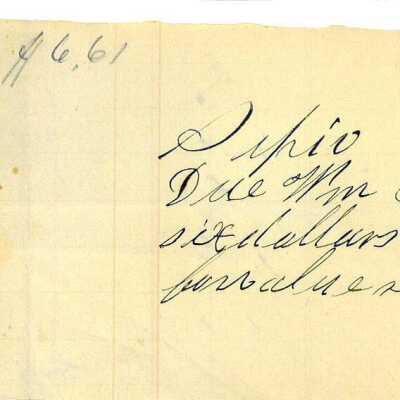 $ 6.61
Scipio
Due Wm
six dollars
for value